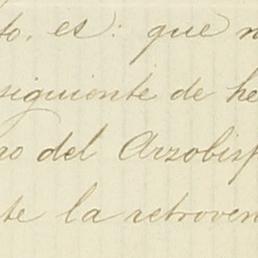 to. es: que n
siguiente de he
no del Arzobisp
te la retroven